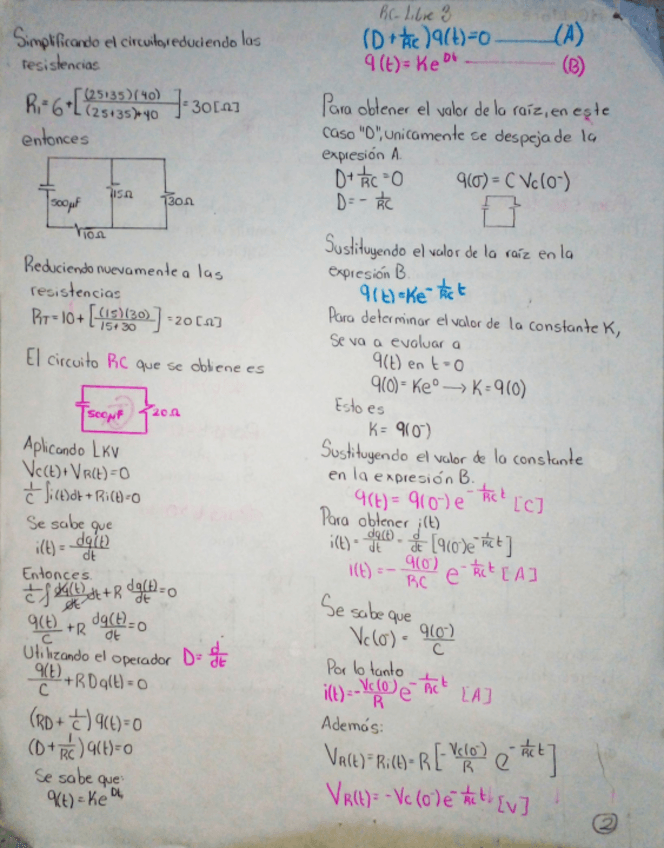 RC-Libre 3
Simplificando el circuito, reduciendo las
resistencias
R₁=6+[(25+35)(40)/(25+35)+40]=30[Ω]
entonces
500μF
15Ω
30Ω
10Ω
Reduciendo nuevamente a las
resistencias
RT=10+[(15)(30)/15+30]=20[Ω]
El circuito RC que se obtiene es
500μF
20Ω
Aplicando LKV
Vc(t)+VR(t)=0
1/C ∫i(t)dt+Ri(t)=0
Se sabe que
i(t)=dq(t)/dt
Entonces
1/C ∫dq(t)/dt dt+R dq(t)/dt=0
q(t)/C+R dq(t)/dt=0
Utilizando el operador D=d/dt
q(t)/C+RDq(t)=0
(RD+1/C)q(t)=0
(D+1/RC)q(t)=0
Se sabe que:
q(t)=Ke^Dt
(D+1/RC)q(t)=0 (A)
q(t)=Ke^Dt (B)
Para obtener el valor de la raíz, en este
caso "D", unicamente se despeja de la
expresión A.
D+1/RC=0 q(0⁻)=C Vc(0⁻)
D=-1/RC
Sustituyendo el valor de la raíz en la
expresión B.
q(t)=Ke^-1/RC t
Para determinar el valor de la constante K,
se va a evaluar a
q(t) en t=0
q(0)=Ke⁰→K=q(0)
Esto es
K=q(0⁻)
Sustituyendo el valor de la constante
en la expresión B.
q(t)=q(0⁻)e^-1/RC t [C]
Para obtener i(t)
i(t)=dq(t)/dt=d/dt[q(0⁻)e^-1/RC t]
i(t)=-q(0⁻)/RC e^-1/RC t [A]
Se sabe que
Vc(0⁻)=q(0⁻)/C
Por lo tanto
i(t)=-Vc(0⁻)/R e^-1/RC t [A]
Además:
VR(t)=Ri(t)=R[-Vc(0⁻)/R e^-1/RC t]
VR(t)=-Vc(0⁻)e^-1/RC t [V]
2